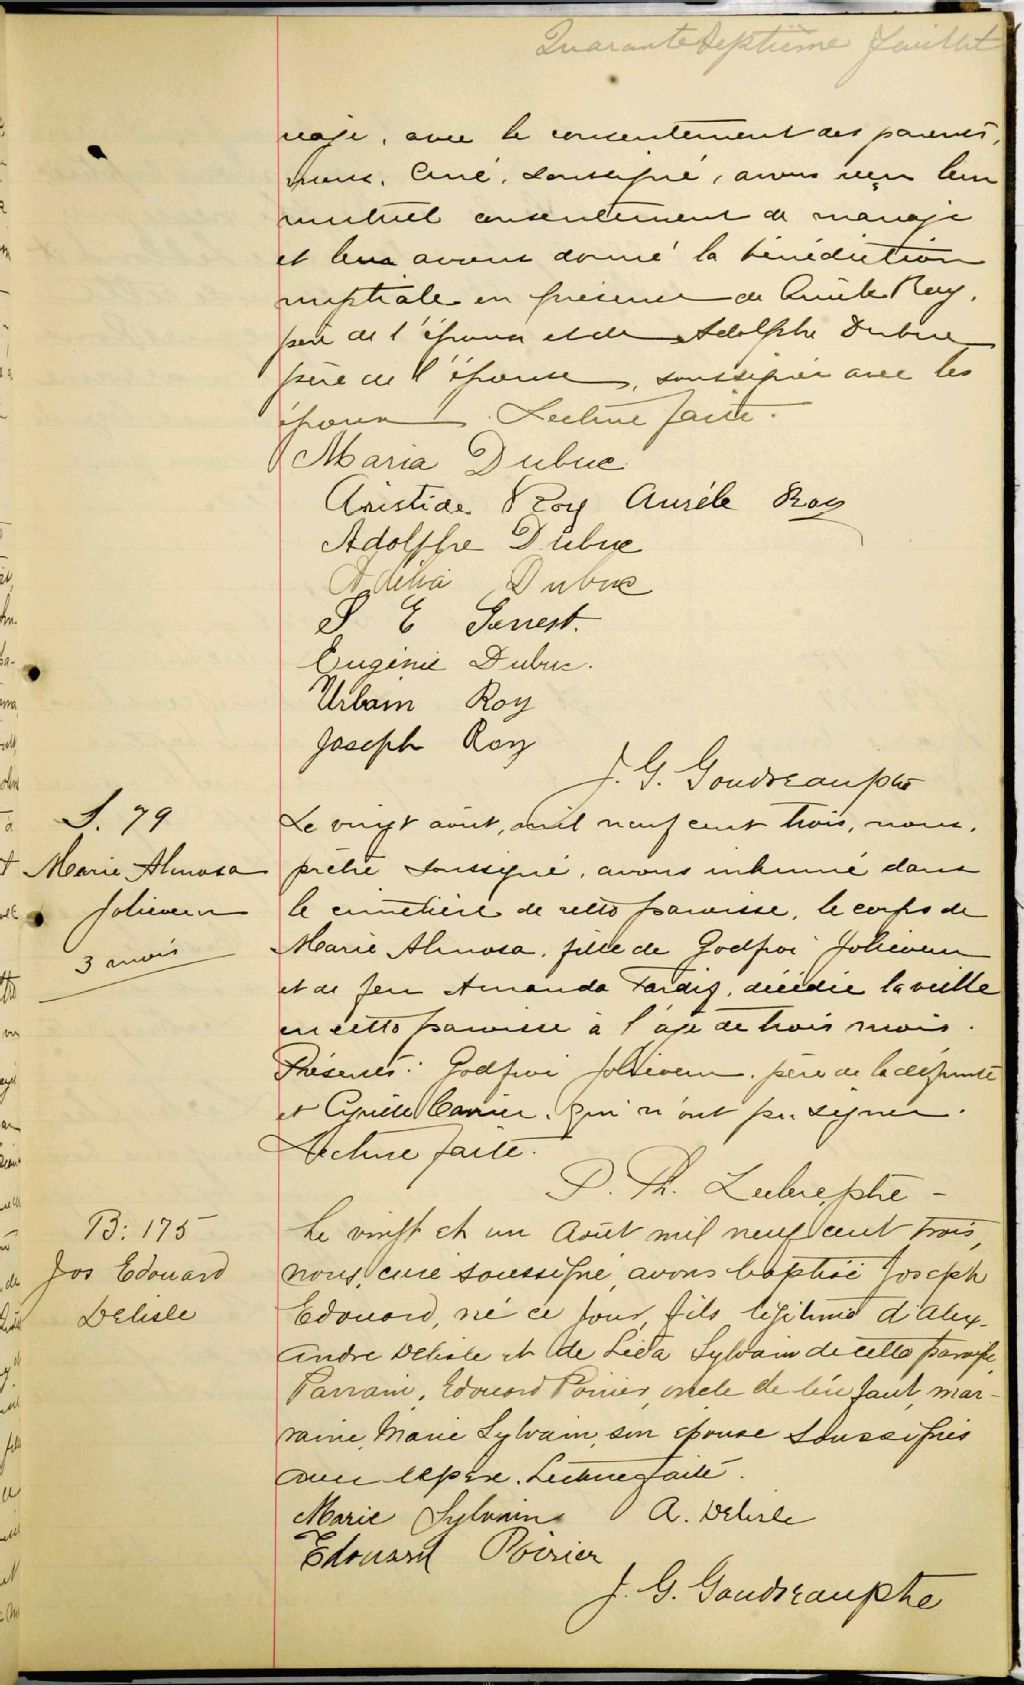 Quarante Septième feuillet
riage, avec le consentement des parents,
nous, Curé, soussigné, avons reçu leur
mutuel consentement de mariage
et leur avons donné la bénédiction
nuptiale en présence de Aurèle Roy,
père de l'époux et de Adolphe Dubuc
père de l'épouse, soussignés avec les
époux. Lecture faite.
Maria Dubuc
Aristide Roy Aurèle Roy
Adolphe Dubuc
Adélia Dubuc
S E
Eugénie Dubuc.
Urbain Roy
Joseph Roy
J. G. Goudreau ptre
S. 79
Marie Almosa
Jolicoeur
3 mois
Le vingt août, mil neuf cent trois, nous,
prêtre soussigné, avons inhumé dans
le cimetière de cette paroisse, le corps de
Marie Almosa, fille de Godfroi Jolicoeur
et de feu Amanda Tardif, décédée la veille
en cette paroisse à l'âge de trois mois.
Présents: Godfroi Jolicoeur, père de la défunte
et Cyrille Carrier, qui n'ont pu signer.
Lecture faite.
P. Th. ptre
B: 175
Jos Edouard
Delisle
Le vingt et un Août mil neuf cent trois,
nous, curé soussigné, avons baptisé Joseph
Edouard, né ce jour, fils légitime d'Alex-
andre Delisle et de Léda Sylvain de cette paroisse,
Parrain, Edouard Poirier, oncle de l'enfant, mar-
raine, Marie Sylvain, son épouse soussignés
avec le père. Lecture faite.
Marie Sylvain A. Delisle
Edouard Poirier
J. G. Goudreau ptre